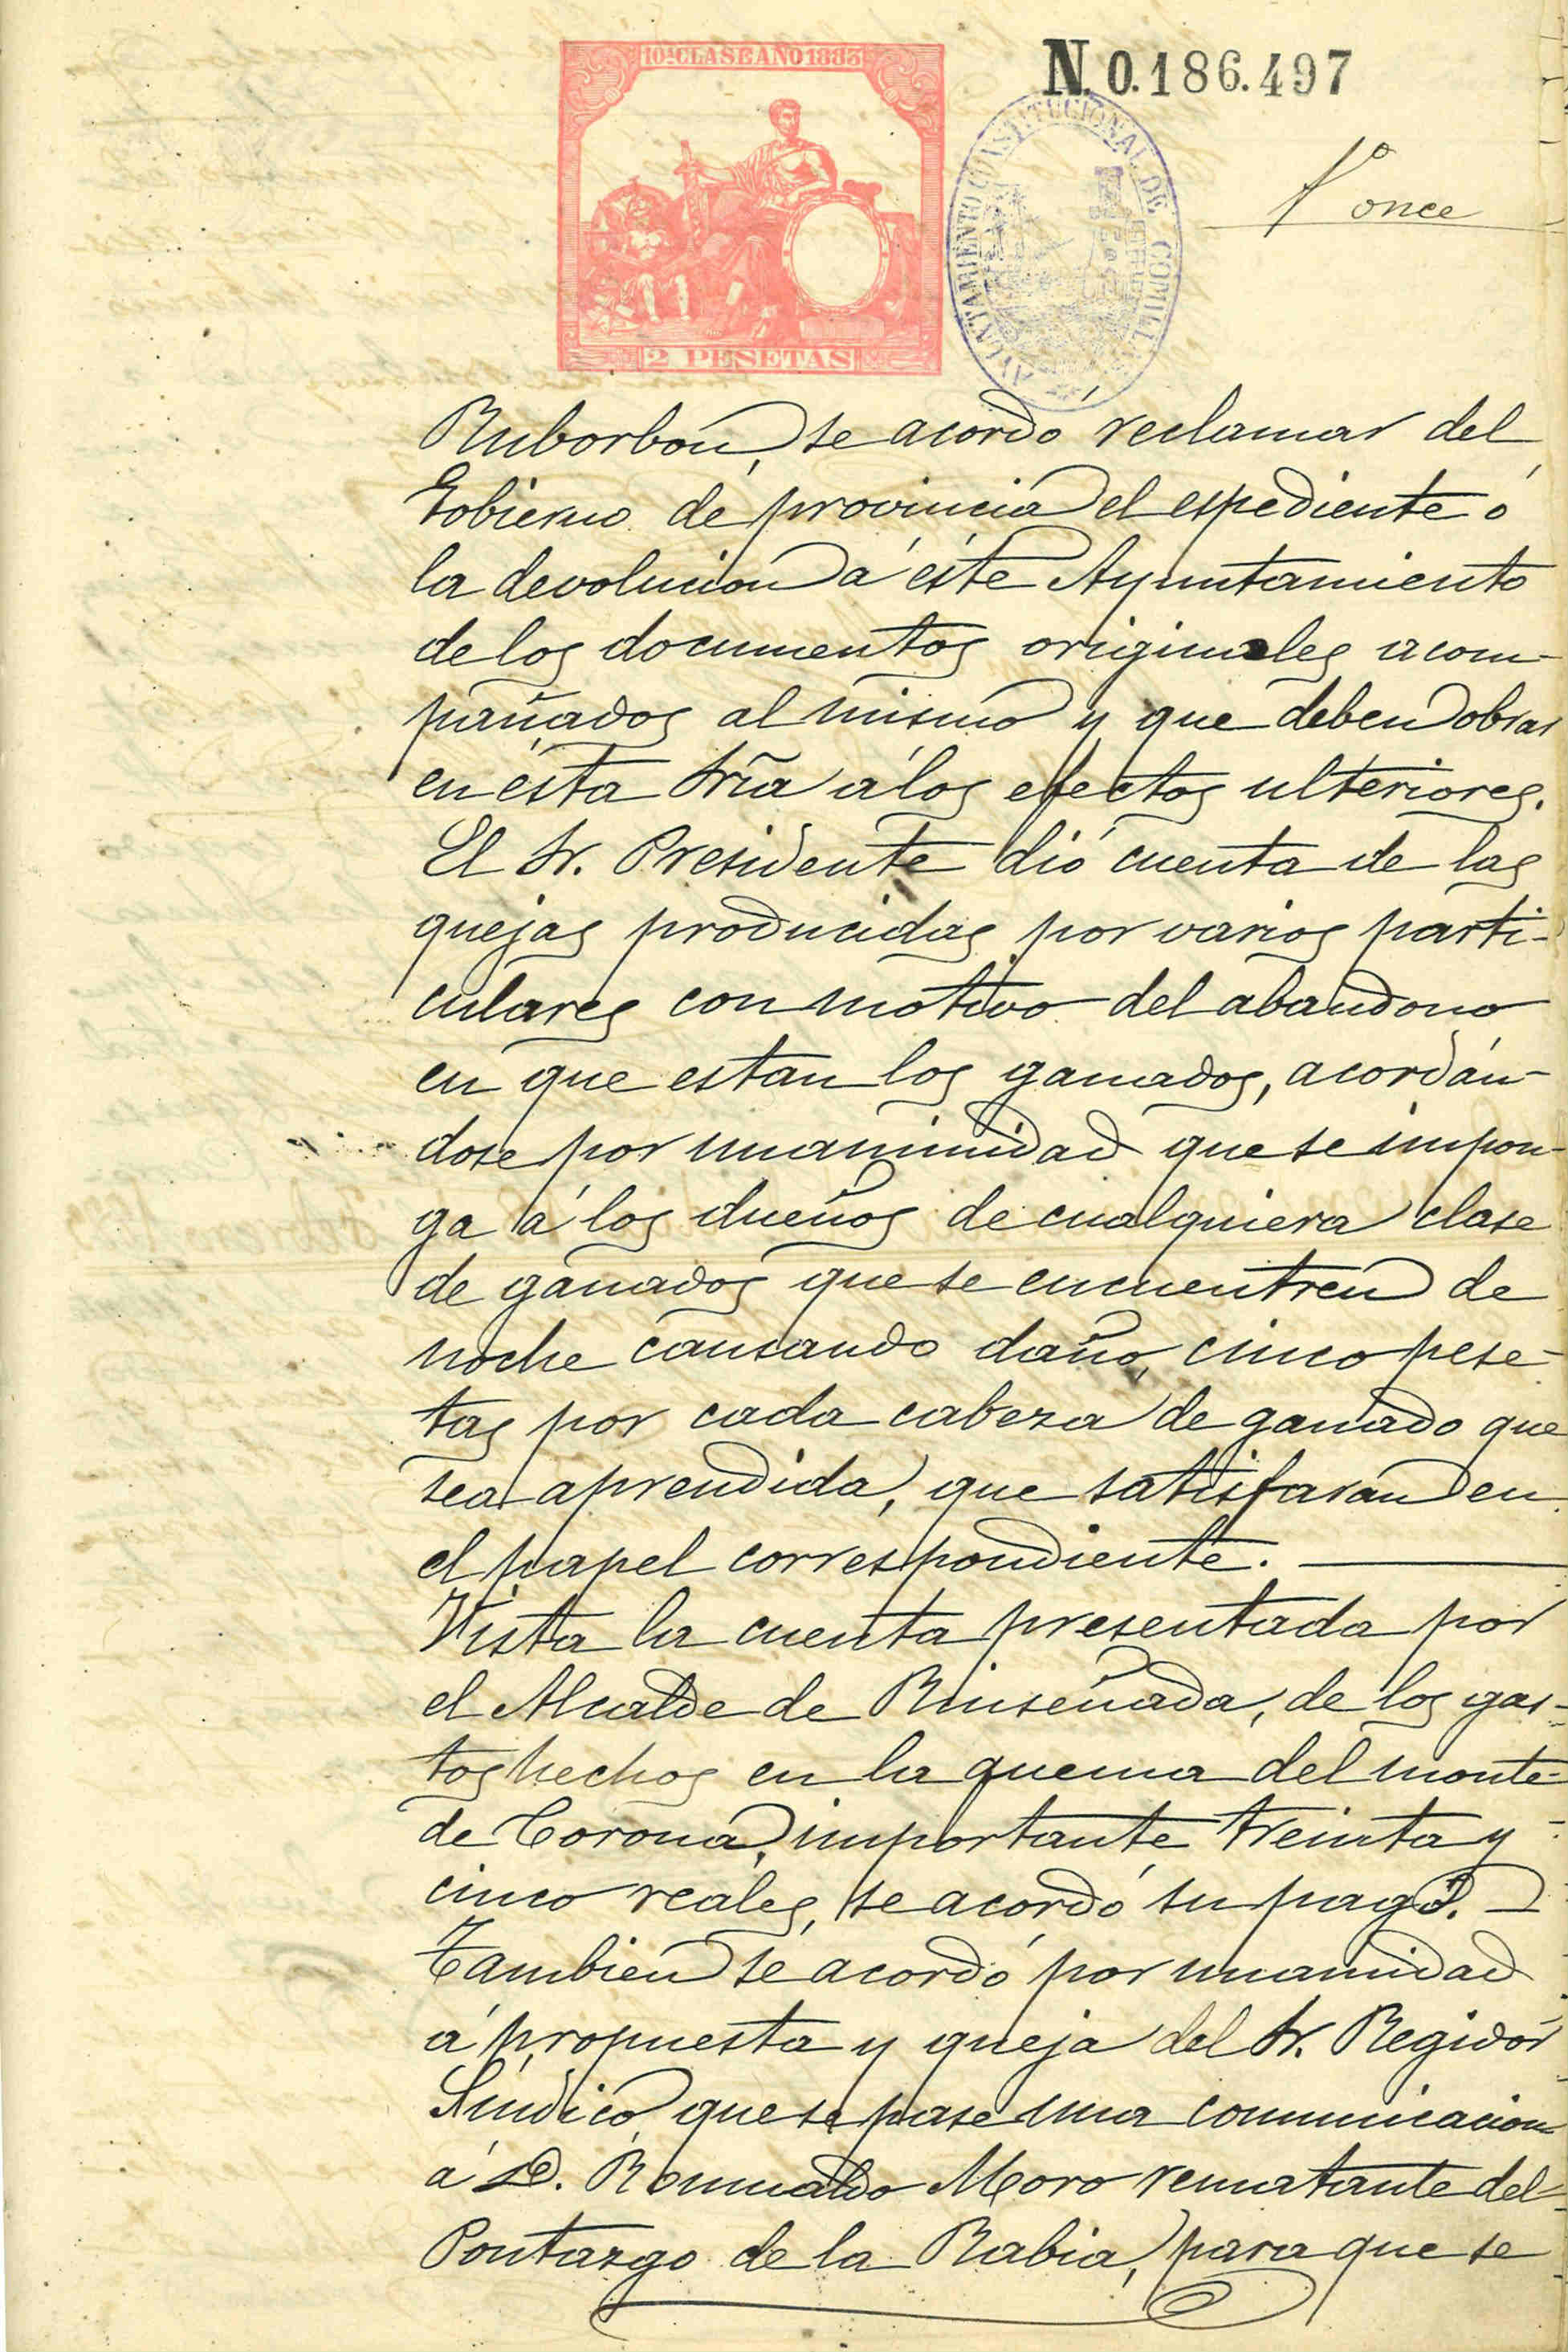 10ª CLASE AÑO 1883
N. 0.186.497
AYUNTAMIENTO CONSTITUCIONAL DE COMILLAS
fº once
2 PESETAS
Ruborbon, se acordó reclamar del
Gobierno de provincia el espediente ó
la devolucion á éste Ayuntamiento
de los documentos originales acom-
pañados al mismo y que deben obrar
en ésta Sría á los efectos ulteriores.
El Sr. Presidente dió cuenta de las
quejas producidas por varios parti-
culares con motivo del abandono
en que estan los ganados, acordán-
dose por unanimidad que se impon-
ga á los dueños de cualquiera clase
de ganados que se encuentren de
noche causando daño, cinco pese-
tas por cada cabeza de ganado que
sea aprendida, que satisfarán en
el papel correspondiente.
Vista la cuenta presentada por
el Alcalde de Ruiseñada, de los gas-
tos hechos en la quema del monte
de Corona, importante treinta y
cinco reales, se acordó su pago.
Tambien se acordó por unamidad
á propuesta y queja del Sr. Regidor
Síndico, que se pase una comunicacion
á D. Romualdo Moro rematante del
Pontazgo de la Rabia, para que se